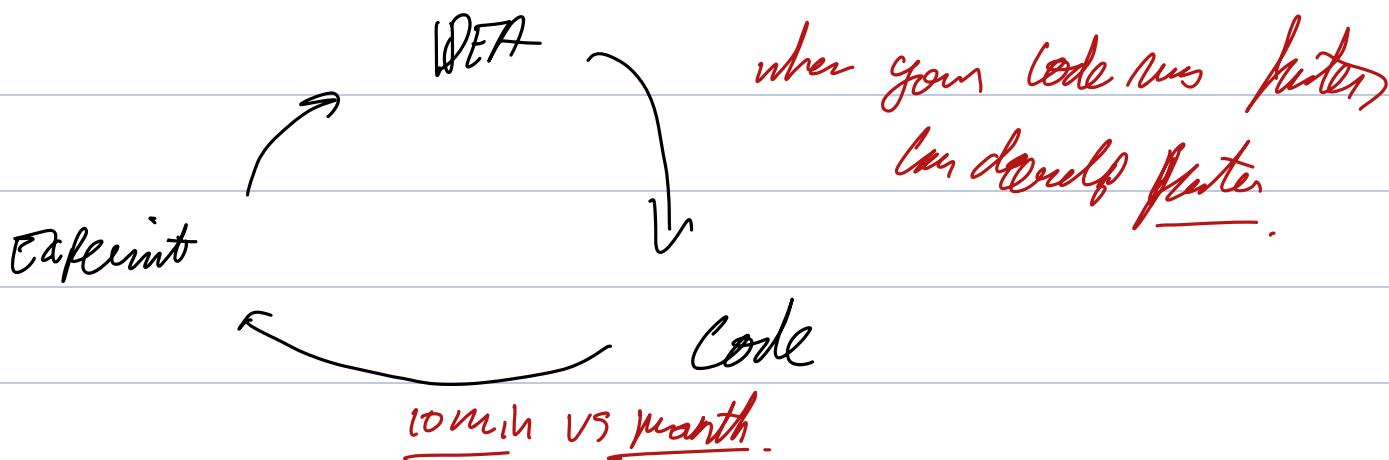 IDEA
when your code runs faster,
can develop faster.
Experiment
Code
10 min vs month.